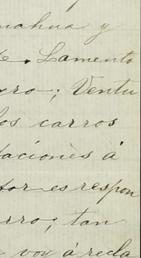 nahua y
. Lamento
ro; Ventu
los carros
taciones á
tor es respon
rro; tan
voy á recla